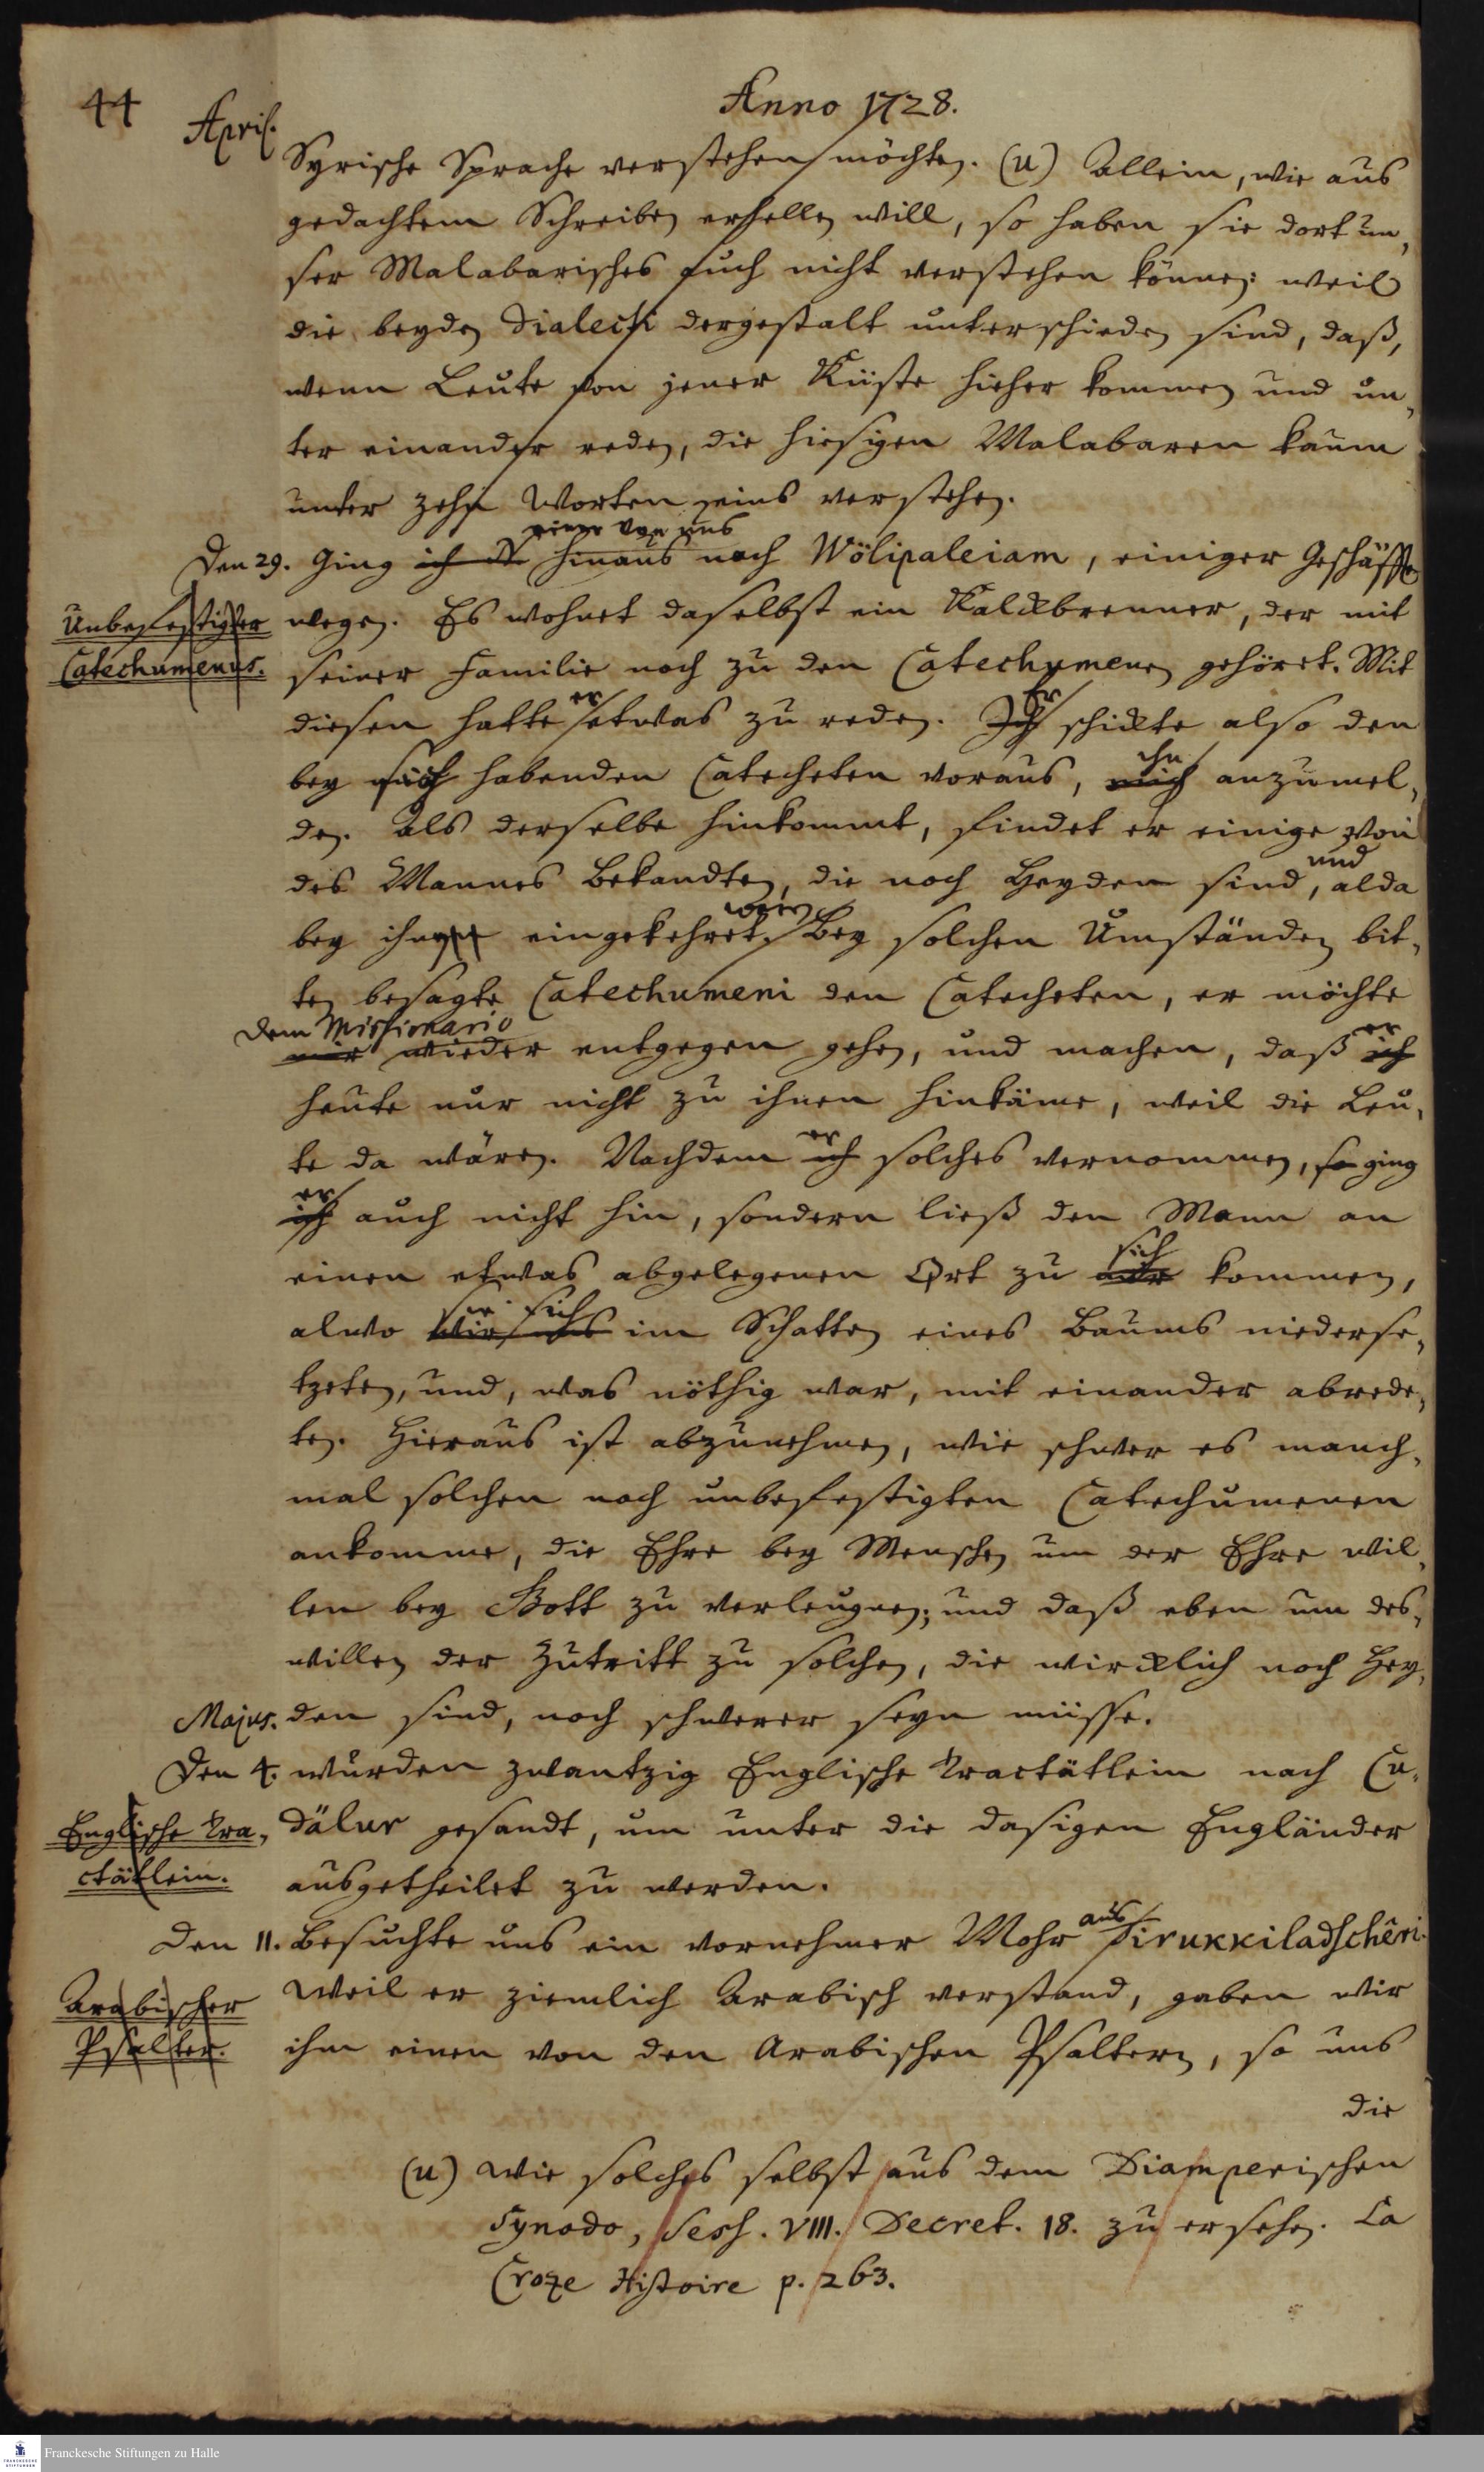 44
Anno 1728.
April.
Syrische Sprache verstehen möchten. (u) Allein, wie aus
gedachtem Schreiben erhellen will, so haben sie dort un,
ser Malabarisches auch nicht verstehen können: weil
die beyden Dialecti dergestalt unterschieden sind, daß,
wenn Leute von jener Küste hieher kommen und un,
ter einander reden, die hiesigen Malabaren kaum
unter zehn Worten eins verstehen.
einer von uns
Den 29. Ging ich hinaus nach Wölipaleiam, einiger Geschäffte
Unbefestigter
Catechumenus.
wegen. Es wohnet daselbst ein Kalckbrenner, der mit
seiner Familie noch zu den Catechumenen gehöret. Mit
er Er
diesen hatte etwas zu reden. Ich schickte also den
ihn
bey sich habenden Catecheten voraus, mich anzumel,
den. Als derselbe hinkommt, findet er einige von
und
des Mannes Bekandten, die noch Heyden sind, alda
waren
bey ihnen eingekehret. Bey solchen Umständen bit,
ten besagte Catechumeni den Catecheten, er möchte
dem Missionario er
mir wieder entgegen gehen, und machen, daß ich
heute nur nicht zu ihnen hinkäme, weil die Leu,
er
te da wären. Nachdem ich solches vernommen, so ging
er
ich auch nicht hin, sondern ließ den Mann an
sich
einen etwas abgelegenen Ort zu mir kommen,
sie sich
alwo wir uns im Schatten eines Baums niederse,
tzeten, und, was nöthig war, mit einander abrede,
ten. Hieraus ist abzunehmen, wie schwer es manch,
mal solchen noch unbefestigten Catechumenen
ankomme, die Ehre bey Menschen um der Ehre wil,
len bey Gott zu verleugnen; und daß eben um des,
willen der Zutritt zu solchen, die wircklich noch Hey,
Majus. den sind, noch schwerer seyn müsse.
Den 4. wurden zwantzig Englische Tractätlein nach Cu,
Englische Tra,
ctätlein.
dälur gesandt, um unter die dasigen Engländer
ausgetheilet zu werden.
aus
Den 11. Besuchte uns ein vornehmer Mohr Tirukkiladschêri.
Arabischer
Psalter.
Weil er ziemlich Arabisch verstand, gaben wir
ihm einen von den Arabischen Psaltern, so uns
die
(u) Wie solches selbst aus dem Diamperischen
Synodo, Sess. VIII. Decret. 18. zu ersehen. La
Croze Histoire p. 263.
Franckesche Stiftungen zu Halle